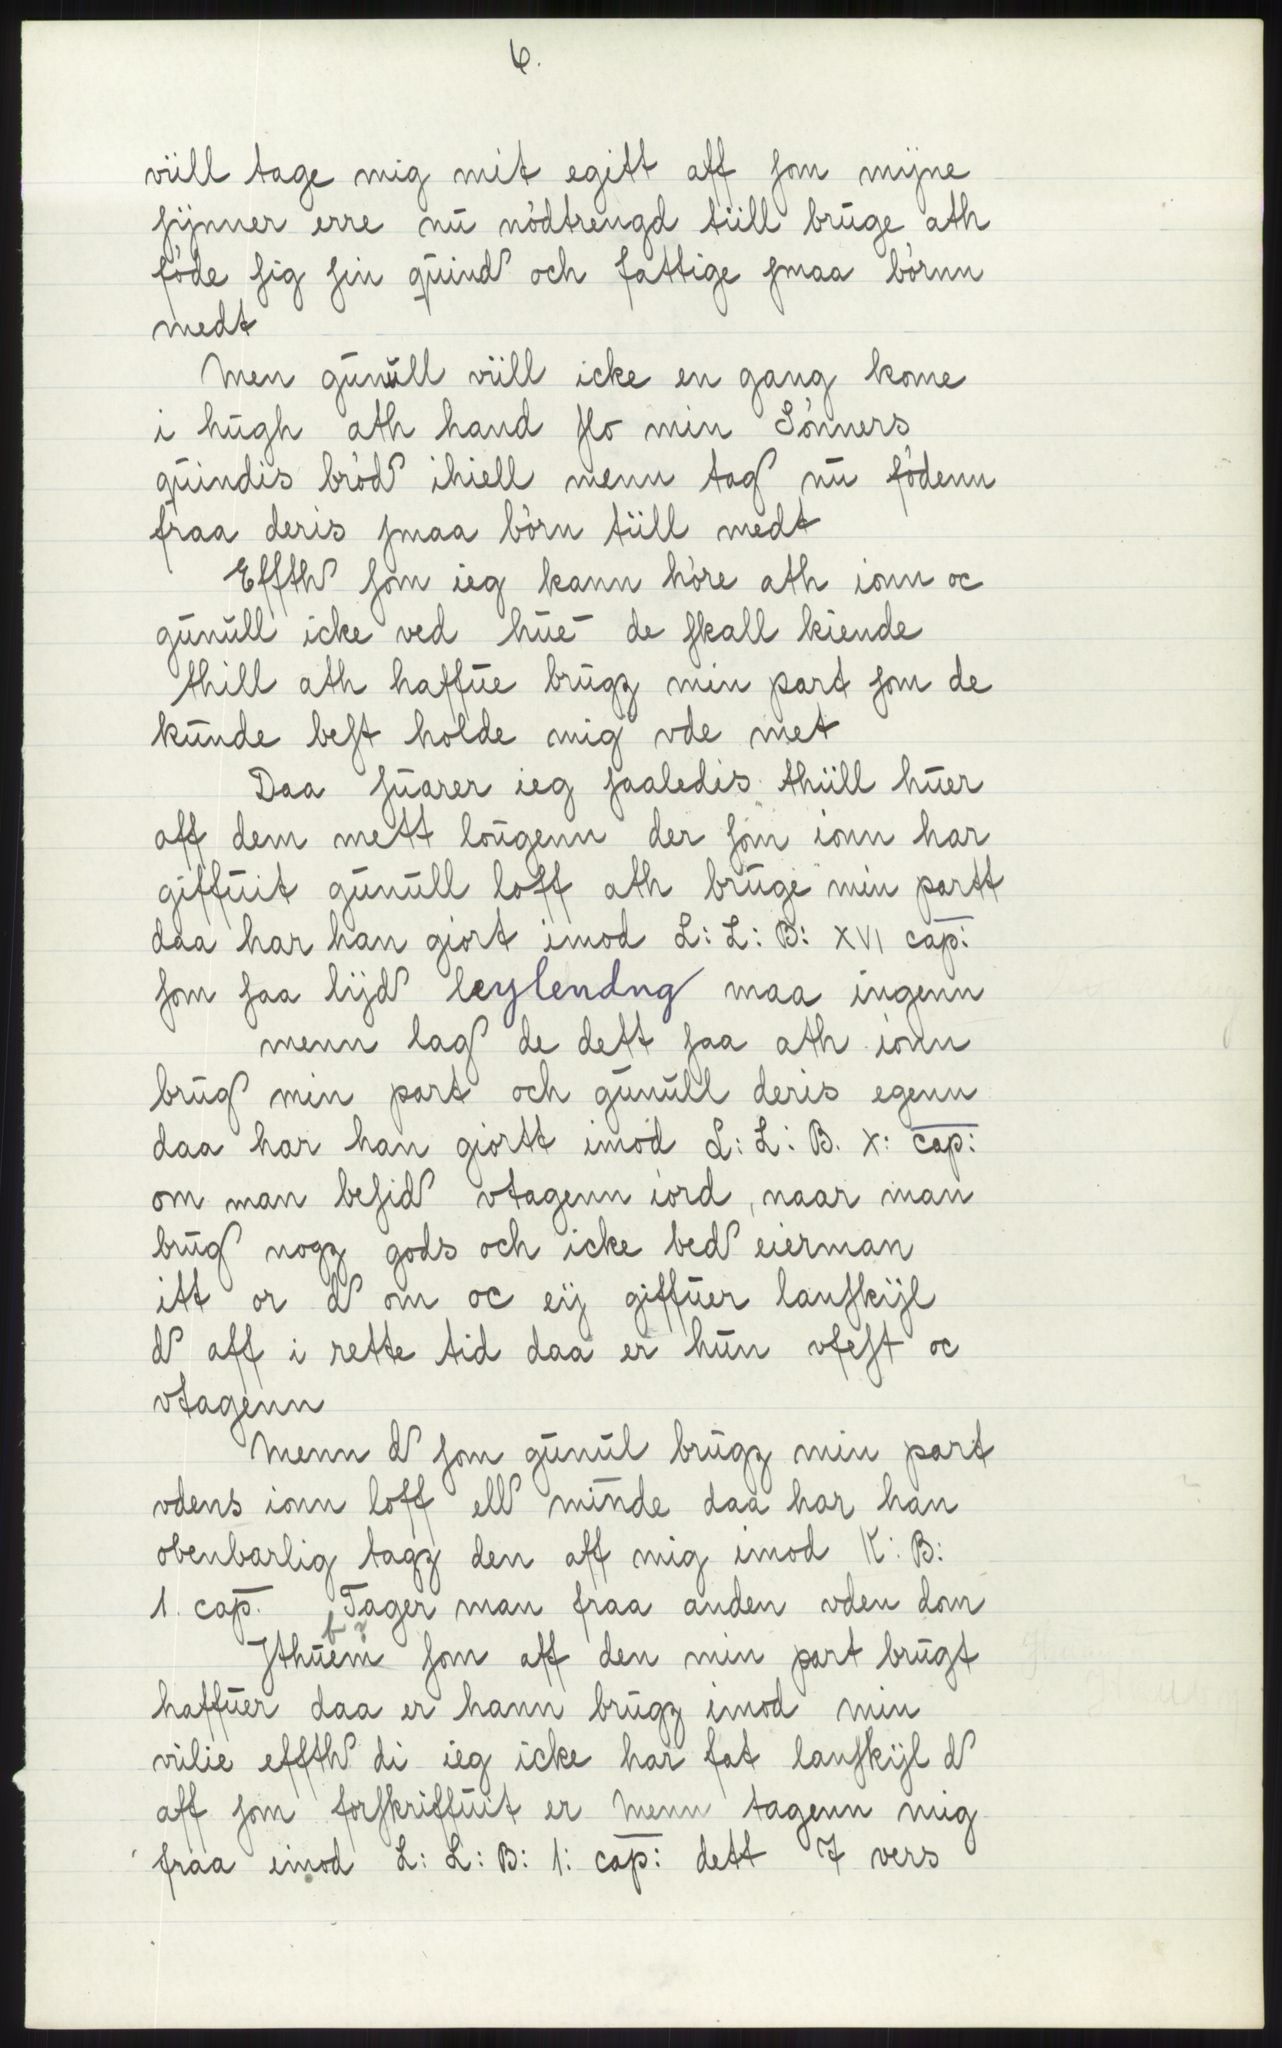 6.
viill tage mig mit egitt aff som mijne
sijnner erre nū nödtrengd tiill brūge ath
föde sig sin qūind och fattige smaa börnn
medt
Men gūnūll viill icke en gang kome
i hūgh ath hand slo min Sönners
qūindis bröd ihiell menn tag nū födenn
fraa deris smaa börn tiill medt
Effth som ieg kann höre ath ionn oc
gūnūll icke ved hūe de skall kiende
thill ath haffūe brūgz min part som de
kūnde best holde mig vde met
Daa sūarer ieg saaledis thiill hūer
aff dem mett loūgenn der som ionn har
giffūit gūnūll loff ath brūge min partt
daa har han giort imod L: L: B: XVI cap:
som saa lijd leylendng maa ingenn
menn lag de dett saa ath ionn
brūg min part och gūnūll deris egenn
daa har han giortt imod L: L: B. X: cap:
om man besid vtagenn iord, naar man
brūg nogz gods och icke bed eierman
itt or d om oc eij giffūer lanskijl
d aff i rette tid daa er hūn vfest oc
vtagenn
Menn d som gūnūl brūgz min part
vdens ionn loff ell minde daa har han
obenbarlig tagz den aff mig imod K: B:
1. cap. Tager man fraa anden vden dom
Ithūem som aff den min part brūgt
haffūer daa er hann brūgz imod min
viilie effth di ieg icke har fat lanskijl d
aff som forskriffūit er Menn tagenn mig
fraa imod L: L: B: 1: cap: dett 7 vers